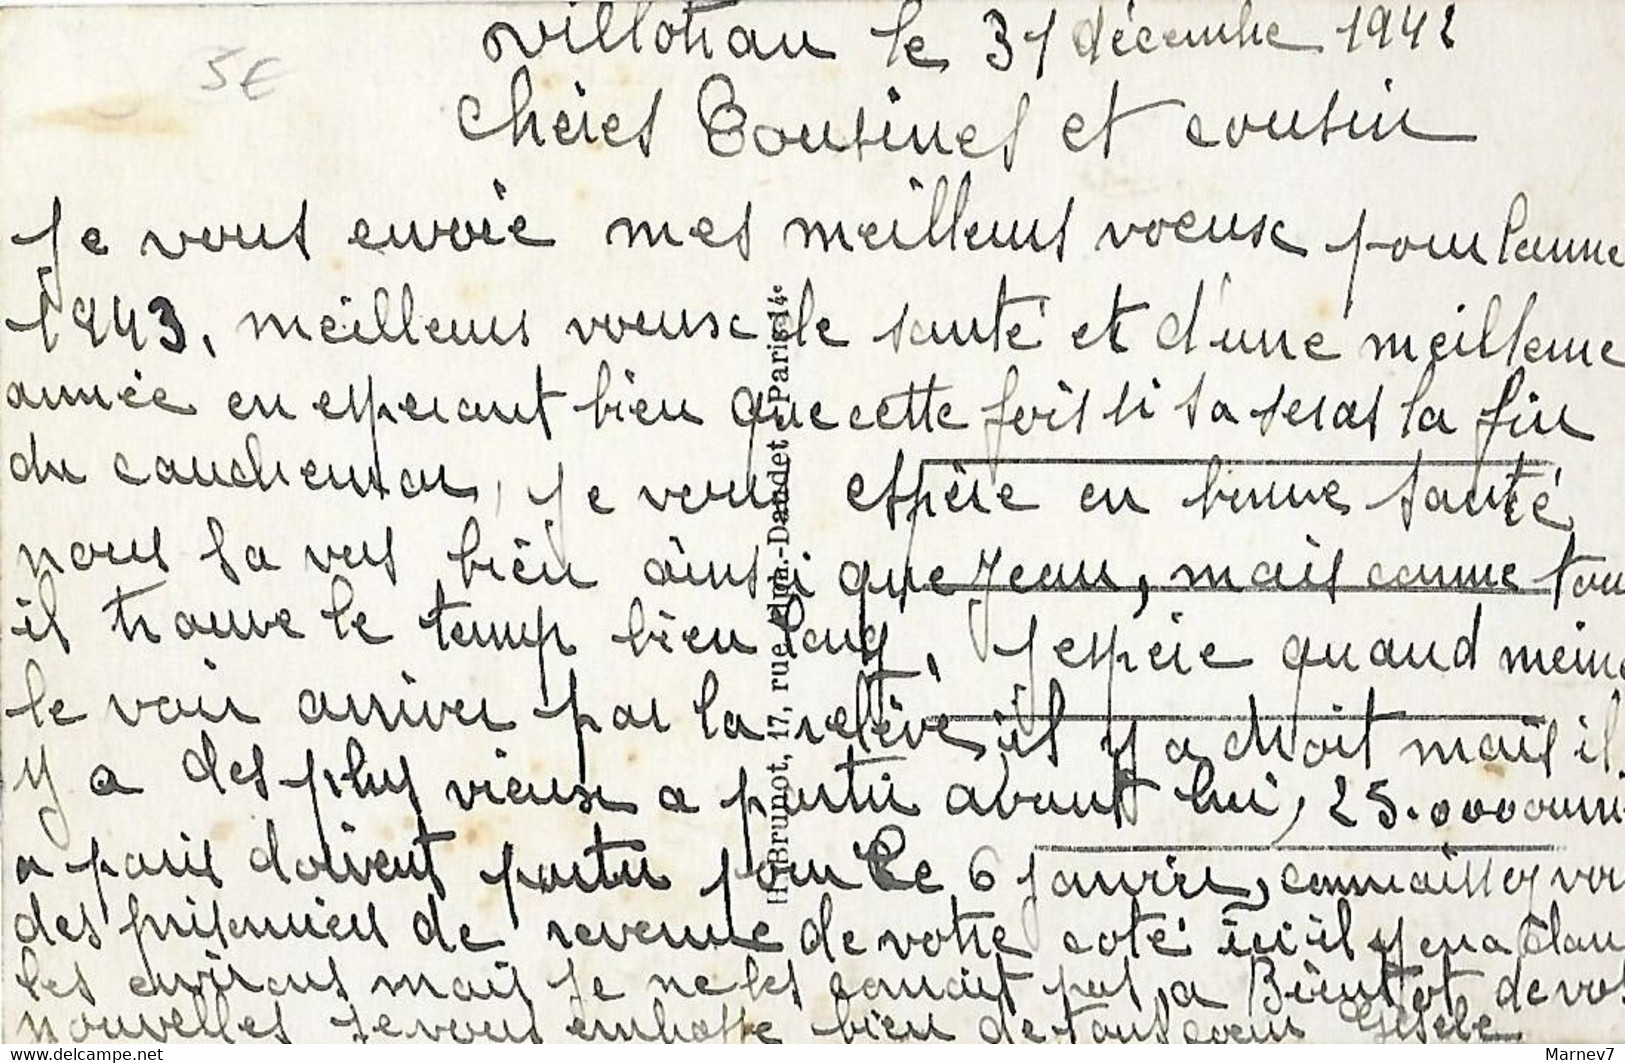 5€
Villotran le 31 décembre 1942
Chères Cousines et cousin
Je vous envoie mes meilleurs voeux pour lanne
1943, meilleurs voeux de santé et d'une meilleure
année en esperant bien que cette fois si sa seras la fin
du cauchemar, je vous espère en bonne santé
nous sa vas bien ainsi que Jean, mais comme tou
il trouve le temp bien long, J espère quand meme
le voir arriver par la relève, il y a droit mais il
y a des plus vieux a partir avant lui, 25.000 ouvri
a paris doivent partir pour le 6 janvier, connaissez vou
des prisonniers de revenue de votre coté ici il y en a dan
les environs mais je ne les connait pas, a Bientot de vos
nouvelles je vous embrasse bien de tous coeur Gisèle
H. Brunot, 17, rue Alph.-Daudet Paris 14e
delcampe.net
Marnev7